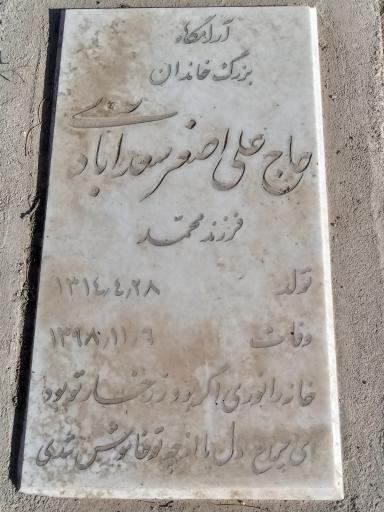 آرامگاه
بزرگ خاندان
حاج علی اصغر سعدآبادی
فرزند محمّد
تولّد ۱۳۱٤٫٤٫۲۸
وفات ۱۳۹۸٫۱۱٫٦
خانه را نوری اگر بود ز رخسار تو بود
ای چراغ دل ما از چه تو خاموش شدی